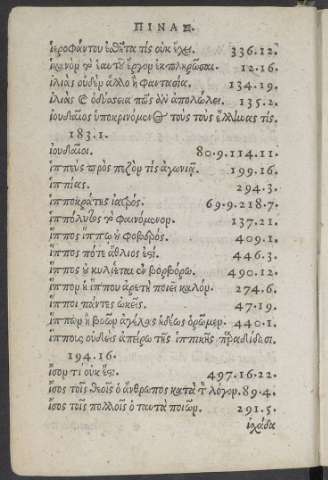 ΠΙΝΑΞ.
ἱεροφάντου ἐσθῆτα τίς οὐκ ἔχει. 336.12.
ἱκανὸν τὸ ἑαυτοῦ ἔργον ἐκπληρῶσαι. 12.16.
ἰλιὰς οὐδὲν ἄλλο ἢ φαντασία. 134.19.
ἰλιὰς καὶ ὀδύσσεια πῶς ἂν ἀπολώλει. 135.2.
ἰουδαῖος ὑποκρινόμενος τοὺς τοὺς ἕλληνας τίς.
183.1.
ἰουδαῖοι. 80.9.114.11.
ἱππεὺς πρὸς πεζὸν τίς ἀγωνιᾷ. 199.16.
ἱππίας. 294.3.
ἱπποκράτης ἰατρός. 69.9.218.7.
ἱππόλυτος τὸ φαινόμενον. 137.21.
ἵππος ἵππῳ οὐ φοβερός. 409.1.
ἵππος πότε ἄθλιός ἐστι. 446.3.
ἵππος οὐ κυλίεται ἐν βορβόρῳ. 490.12.
ἵππον ἡ ἵππου ἀρετὴ ποιεῖ καλόν. 274.6.
ἵπποι πάντες ὠκεῖς. 47.19.
ἵππων ἢ βοῶν ἀγέλας ἡδέως ὁρῶμεν. 440.1.
ἵπποις οὐδεὶς ἀπείρῳ τῆς ἱππικῆς παραδίδωσι.
194.16.
ἴσον τί οὐκ ἔστι. 497.16.22.
ἴσος τοῖς θεοῖς ὁ ἄνθρωπος κατὰ τὸν λόγον. 89.4.
ἴσος τοῖς πολλοῖς ὁ ταυτὰ ποιῶν. 291.5.
ἰχάδα